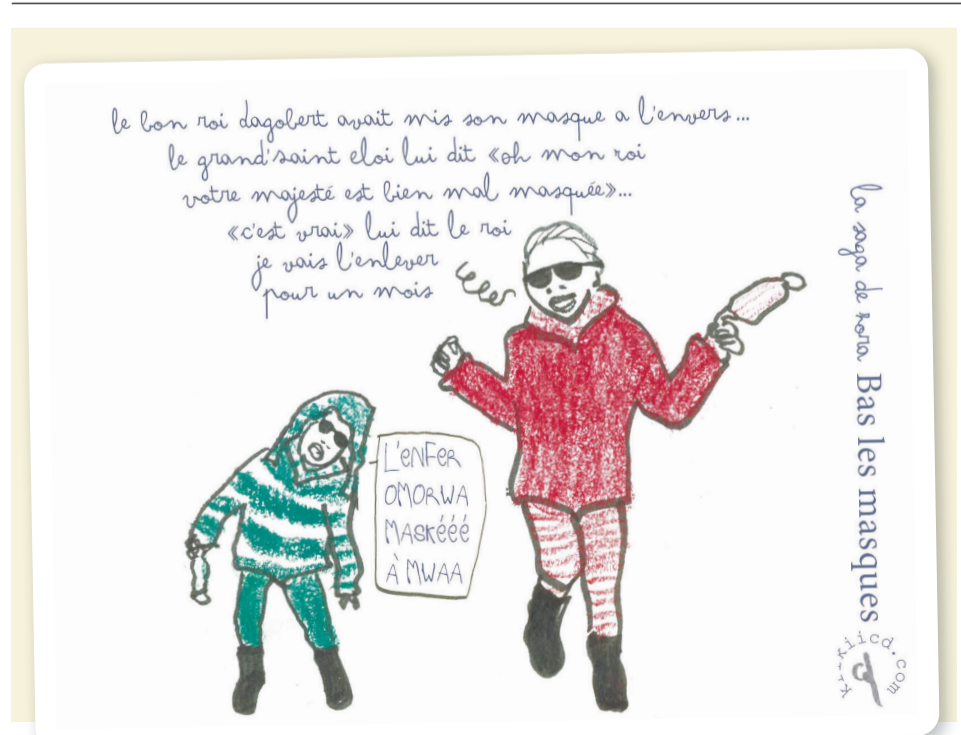 le bon roi dagobert avait mis son masque a l'envers...
le grand'saint eloi lui dit «oh mon roi
votre majesté est bien mal masquée»...
«c'est vrai» lui dit le roi
je vais l'enlever
pour un mois
L'ENFER
OMORWA
MASKÉÉÉ
À MWAA
la saga de sora Bas les masques